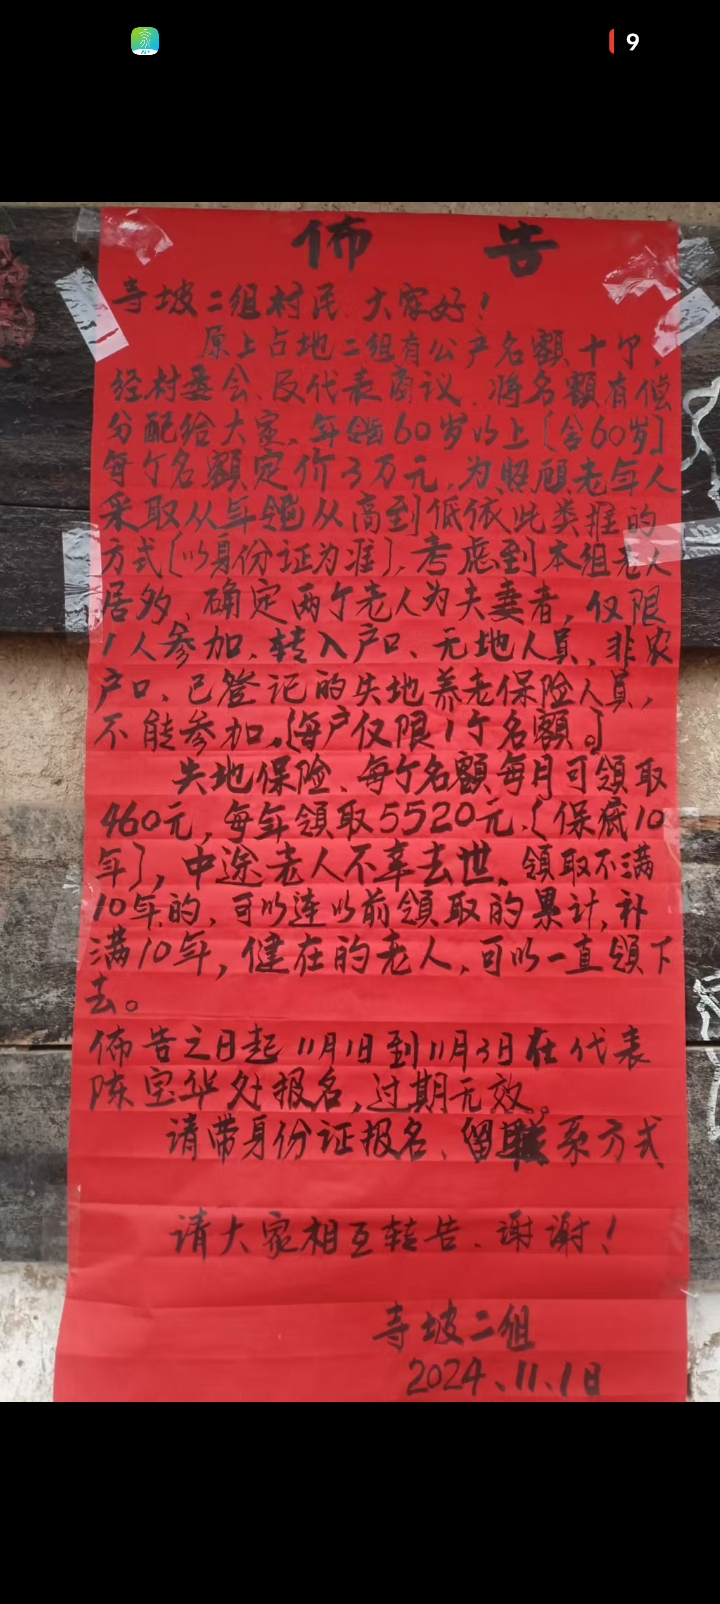 9
佈告
寺坡二组村民 大家好！
原上占地二组有公产名额十个，
经村委会、及代表商议 将名额有偿
分配给大家、年龄60岁以上〔含60岁〕
每个名额定价3万元，为照顾老年人
采取从年龄从高到低依此类推的
方式〔以身份证为准〕，考虑到本组老人
居多、确定两个老人为夫妻者，仅限
1人参加、转入户口、无地人员、非农
户口、已登记的失地养老保险人员，
不能参加。〔每户仅限1个名额。〕
失地保险、每个名额每月可领取
460元，每年领取5520元、〔保底10
年〕，中途老人不幸去世、领取不满
10年的、可以连以前领取的累计，补
满10年，健在的老人、可以一直领下
去。
佈告之日起 11月1日到11月3日在代表
陈宝华处报名，过期无效。
请带身份证报名、留联系方式
请大家相互转告、谢谢！
寺坡二组
2024、11、1日